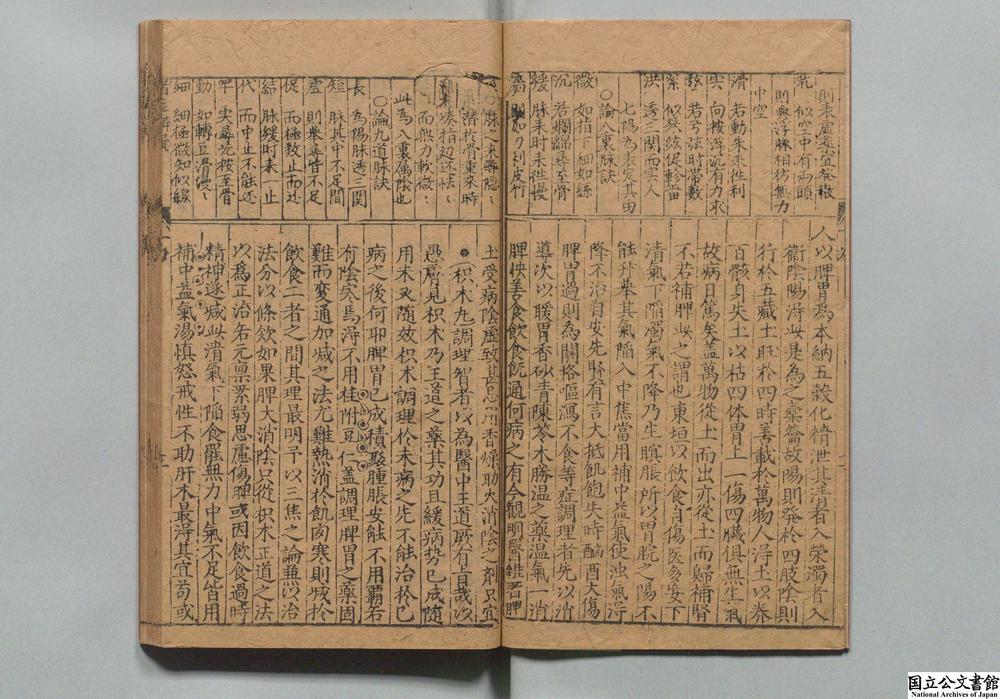 則來虛虛宜發散
芤 似空中有兩頭
則與浮脉相彷無力
中空
滑 若動朱來徃利
实 向按浮沉有力求
弦 若弓弦时帶数
緊 似莫絃促轸雷
洪 透三関而实人
七陽為表定其由
〇論八裏脉訣
微 如指下細如絲
沉 若爛綿尋至骨
緩 脉来时来徃慢
濇 則如刀刮皮竹
人以脾胃為本納五穀化精泄其清者入榮濁者入
衛陰陽淂此是為之橐籥故陽則發於四肢陰則
行於五藏土旺於四時善載於萬物人淂土以养
百骸身失土以枯四体胃上一傷四臟俱無生氣
故病日篤矣盖萬物從土而出亦從土而歸補腎
不若補脾此之謂也東垣以飲食自傷医多妄下
清氣下陷濁氣不降乃生䐜脹所以胃脘之陽不
能升舉其氣陷入中焦當用補中益氣使浊氣淂
降不治自安先賢有言大抵飢飽失時酗酒大傷
脾胃過則為關格嘔瀉不食等症調理者先以消
導次以暖胃香砂青陳苓术勝温之藥温氣一消
脾快善食飲食既通何病之有今観明醫鑑著脾
潜於骨重來時
而無力軟微
此為八裏属陰也
〇論九道脉訣
長 為陽脉透三関
短 脉其中不足間
虛 則舉尋皆不足
促 而極数止而还
結 脉緩时来一止
代 而中止不能还
牢 实尋沉按至骨
動 如轉豆滑慢
細 細極微知似線
土受病陰虛致其用香燥助火消陰之剤只宜
枳术丸調理智者以為醫中王道厥有旨哉以
愚膚見枳术乃王道之藥其功且緩病势已成随
用未必随效枳术調理於未病之先不能治於已
病之後何耶脾胃已成積聚腫脹安能不用覇若
有陰寒焉淂不用桂附豆仁盖調理脾胃之藥固
難而変通加减之法尤難熱消於飢肉寒則城於
飲食二者之間其理最明予以三焦之論無以治
法分以條欸如果脾大消陰只從枳术正道之法
以為正治若元禀素弱思慮傷脾或因飲食過時
精神遂减此清氣下陷食罷無力中氣不足皆用
補中益氣湯慎怒戒性不助肝木最淂其宜苟或
国立公文書館
National Archives of Japan